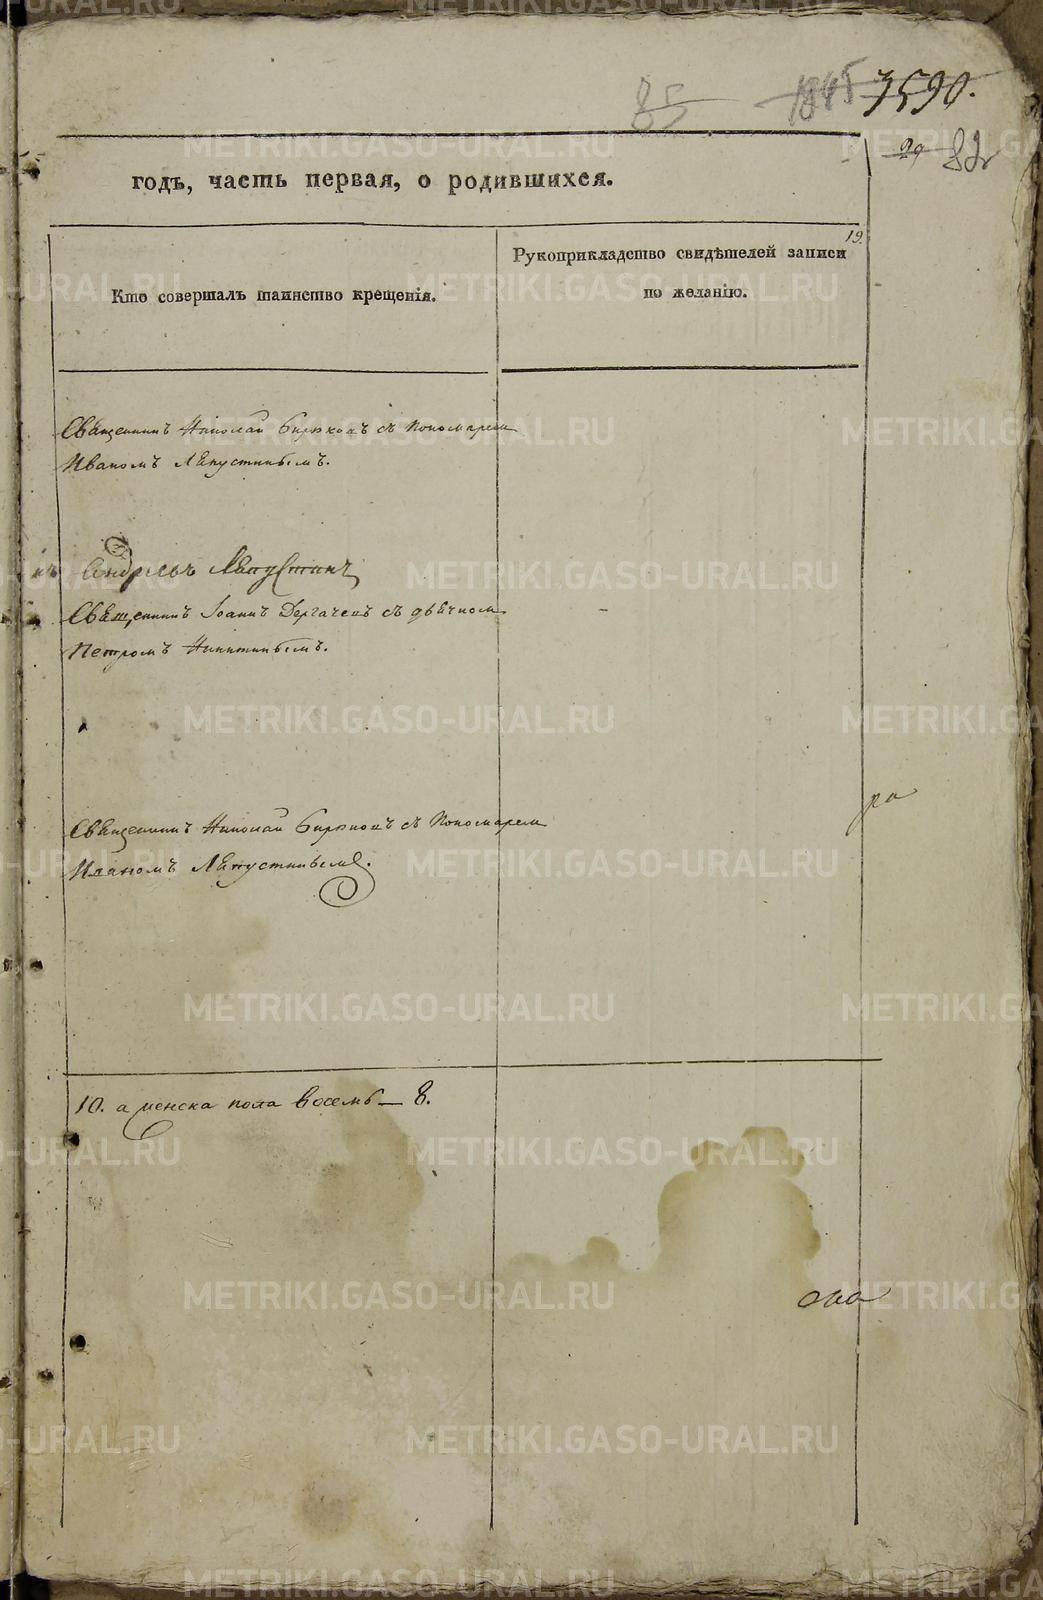 85 1845 3590.
29 82
годъ, часть первая, о родившихся.
19.
Рукоприкладство свидѣтелей записи
по желанію.
Кто совершалъ таинство крещенія.
Священникъ Николай Бирюковъ съ Пономаремъ
Иваномъ Лѣпустинымъ.
Андреевъ Лѣпустинъ
Священникъ Іоаннъ Дергачевъ съ дьячкомъ
Петромъ Никитинымъ.
ра
Священникъ Николай Бирюковъ съ Пономаремъ
Иваномъ Лѣпустинымъ.
10. а женска пола восемь — 8.
ова
METRIKI.GASO-URAL.RU